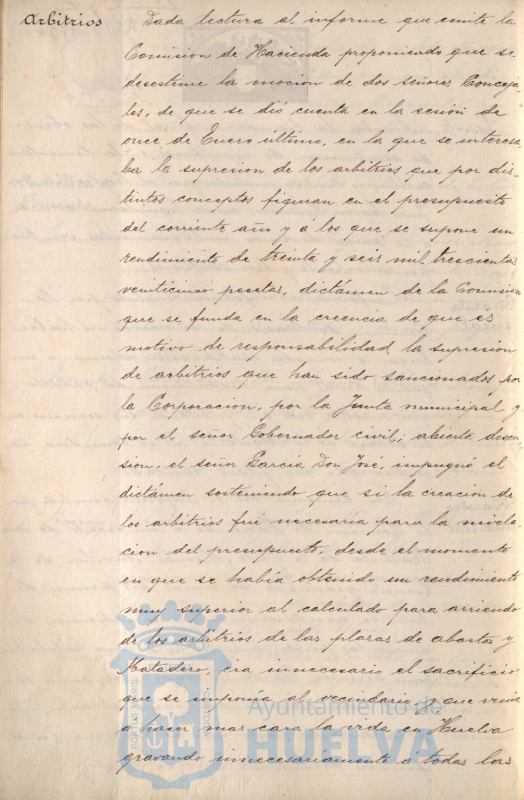 Arbitrios Dada lectura al informe que emite la
Comision de Hacienda proponiendo que se
desestime la mocion de dos señores Conceja-
les, de que se dió cuenta en la sesión de
once de Enero último, en la que se interesa
ba la supresion de los arbitrios que por dis-
tintos conceptos figuran en el presupuesto
del corriente año y á los que se supone un
rendimiento de treinta y seis mil trescientas
veinticinco pesetas, dictámen de la Comision
que se funda en la creencia de que es
motivo de responsabilidad la supresion
de arbitrios que han sido sancionados por
la Corporacion, por la Junta municipal y
por el señor Gobernador civil; abierta discu-
sion, el señor García Don José, impugnó el
dictámen sosteniendo que si la creacion de
los arbitrios fué necesaria para la nivela-
cion del presupuesto, desde el momento
en que se había obtenido un rendimiento
muy superior al calculado para arriendo
de los arbitrios de las plazas de abastos y
Matadero, era innecesario el sacrificio
que se imponia al vecindario y que venia
a hacer mas cara la vida en Huelva
gravando innecesariamente a todas las
Ayuntamiento de
HUELVA